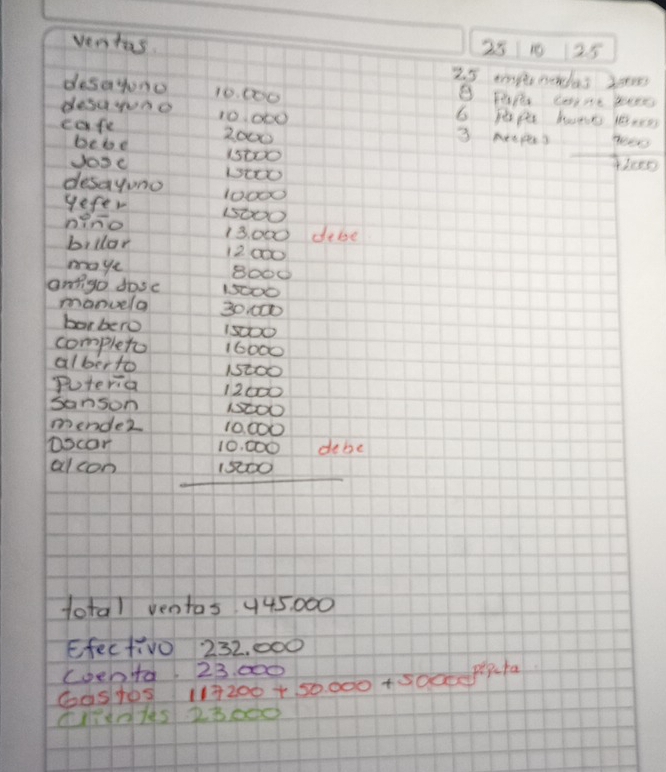 ventas
25 | 10 | 25
desayuno 10.000
desayuno 10.000
cafe 2000
bebe 15000
Jose 15000
desayuno 10000
yefer 15000
niño 13.000 debe
billar 12.000
maye 8000
amigo Jose 15000
manuela 30.000
barbero 15000
completo 16000
alberto 15000
Puteria 12000
Sanson 15000
mendez 10.000
Oscar 10.000 debe
alcon 15000
25
8 Papa carne
6 Papa huevo
3 Arepas
total ventas 445.000
Efectivo 232.000
Cuenta 23.000
Gastos 117200 + 50.000 + 50000
Clientes 23.000